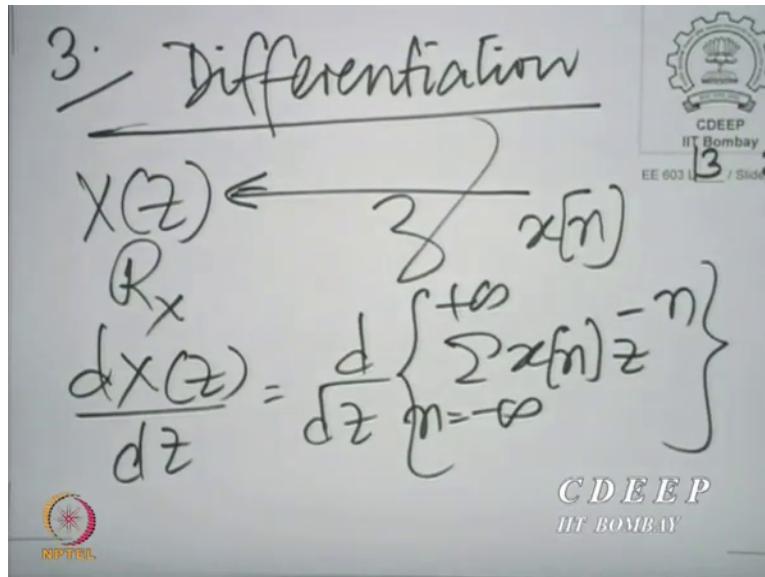 3. Differentiation
CDEEP
IIT Bombay
EE 603 L 13 / Slide
X(Z) ← x[n]
Z
Rx
dX(Z)/dZ = d/dZ { +∞ Σ n=-∞ x[n] z^-n }
CDEEP
IIT BOMBAY
NPTEL